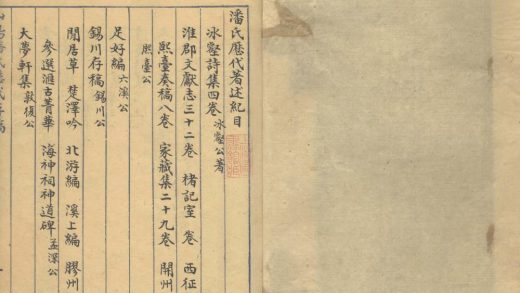 潘氏歷代著述紀目
冰壑詩集四卷 冰壑公著
淮郡文獻志三十二卷 楮記室 卷 西征
熙臺奏稿八卷 家藏集二十九卷 開州
熙臺公
足好編 六溪公
錫川存稿 錫川公
閒居草 楚澤吟 北游編 溪上編 膠州
參選滙古菁華 海神祠神道碑 孟深公
大夢軒集 敦復公